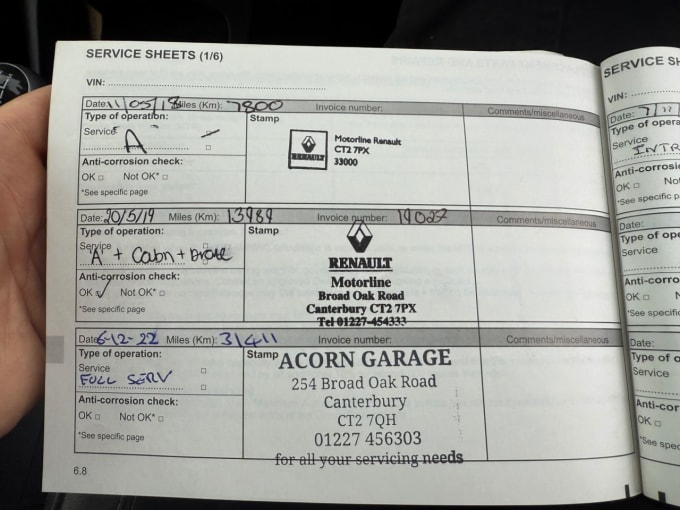 SERVICE SHEETS (1/6)
VIN:
Date: 11/05/18 Miles (Km): 7800 Invoice number: Comments/miscellaneous
Type of operation: Stamp
Service A
RENAULT
Motorline Renault
CT2 7PX
33000
Anti-corrosion check:
OK □ Not OK* □
*See specific page
Date: 20/5/19 Miles (Km): 13989 Invoice number: Comments/miscellaneous
Type of operation: Stamp
Service
"A" + Cabn +
RENAULT
Motorline
Broad Oak Road
Canterbury CT2 7PX
Tel 01227-454333
Anti-corrosion check:
OK ✓ Not OK* □
*See specific page
Date: 6-12-22 Miles (Km): 31411 Invoice number: Comments/miscellaneous
Type of operation: Stamp
Service
FULL SERV
ACORN GARAGE
254 Broad Oak Road
Canterbury
CT2 7QH
01227 456303
for all your servicing needs
Anti-corrosion check:
OK □ Not OK* □
*See specific page
6.8
SERVICE SH
VIN:
Date: 7/
Type of opera
Service
INTR
Anti-corrosi
OK □ No
*See specific pa
Date:
Type of ope
Service
Anti-corro
OK □ N
*See specifi
Date:
Type of o
Service
Anti-cor
OK □
*See spec